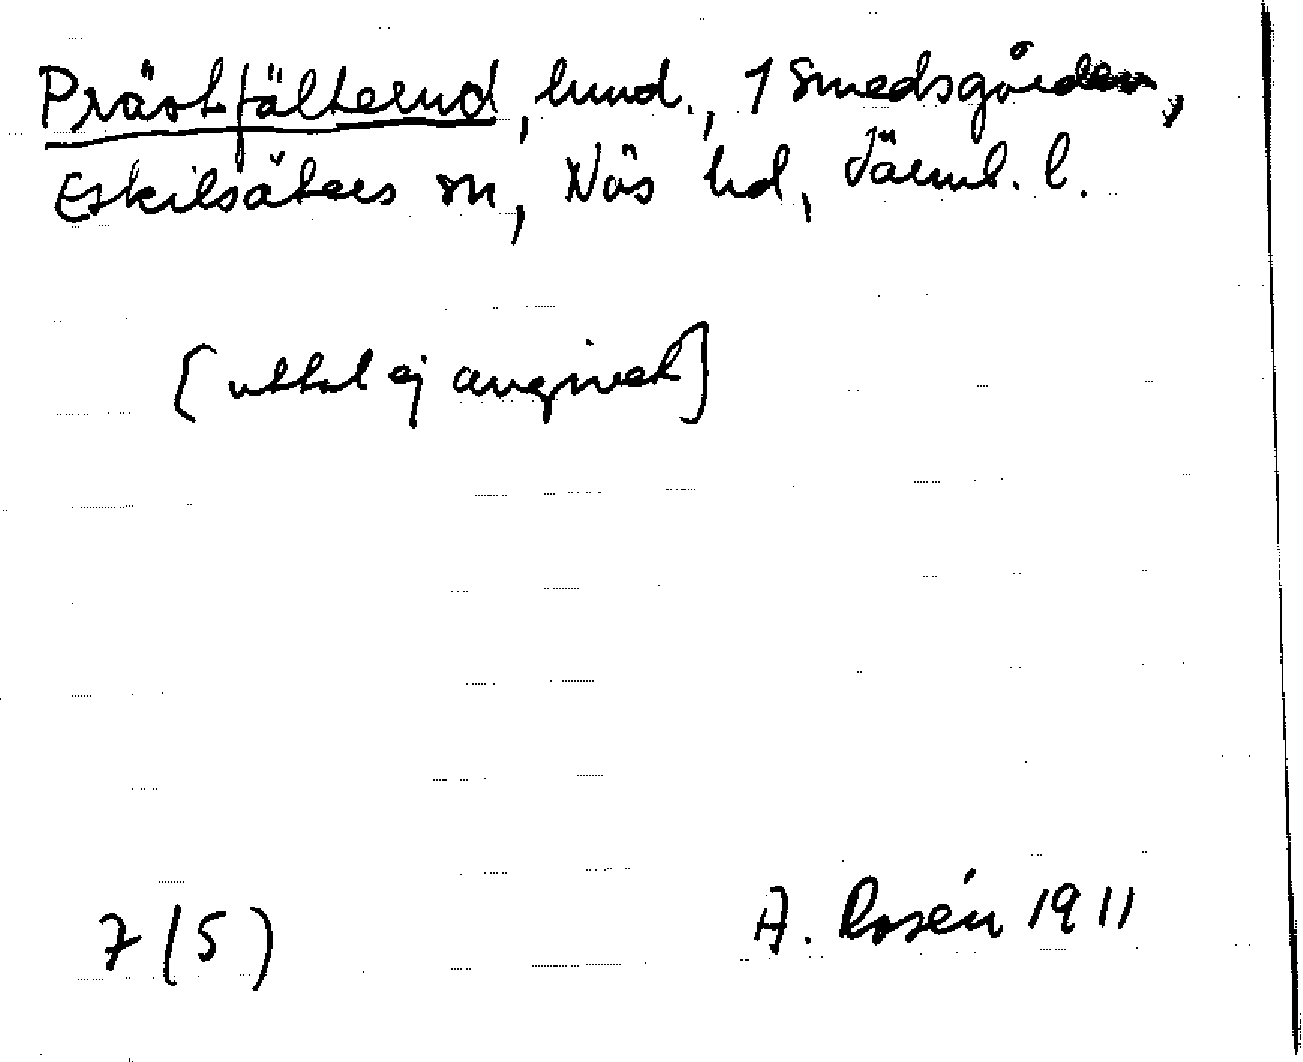 Prästfälternd, hund., 1 Smedsgården,
Eskilsäters sn, Näs hd, Värml. l.
[uttal ej angivet]
7 (5)
A. Rosén 1911